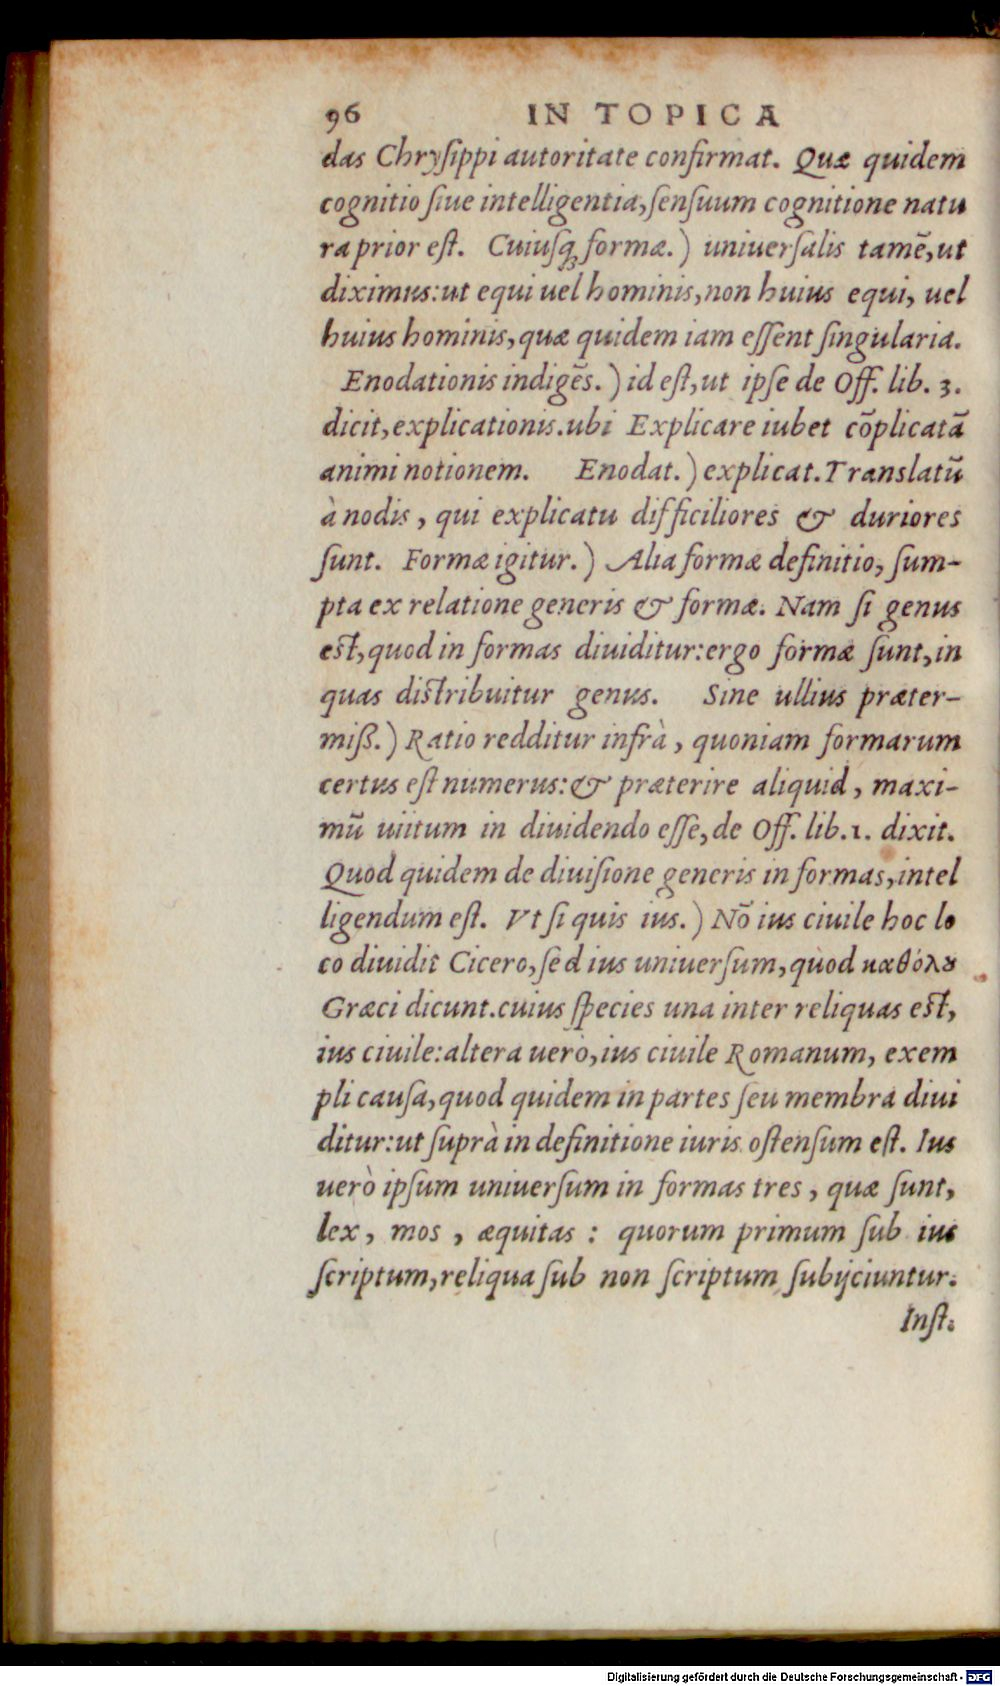 96 IN TOPICA
das Chryſippi autoritate confirmat. Quæ quidem
cognitio ſiue intelligentia, ſenſuum cognitione natu
ra prior eſt. Cuiuſq; formæ.) uniuerſalis tamē, ut
diximus: ut equi uel hominis, non huius equi, uel
huius hominis, quæ quidem iam eſſent ſingularia.
Enodationis indigēs.) id eſt, ut ipſe de Off. lib. 3.
dicit, explicationis. ubi Explicare iubet cōplicatā
animi notionem. Enodat.) explicat. Translatū
à nodis, qui explicatu difficiliores & duriores
ſunt. Formæ igitur.) Alia formæ definitio, ſum-
pta ex relatione generis & formæ. Nam ſi genus
eſt, quod in formas diuiditur: ergo formæ ſunt, in
quas diſtribuitur genus. Sine ullius præter-
miß.) Ratio redditur infrà, quoniam formarum
certus eſt numerus: & præterire aliquid, maxi-
mū uitum in diuidendo eſſe, de Off. lib. 1. dixit.
Quod quidem de diuiſione generis in formas, intel
ligendum eſt. Vt ſi quis ius.) Nō ius ciuile hoc lo
co diuidit Cicero, ſed ius uniuerſum, quod καθόλȣ
Græci dicunt. cuius ſpecies una inter reliquas eſt,
ius ciuile: altera uerò, ius ciuile Romanum, exem
pli cauſa, quod quidem in partes ſeu membra diui
ditur: ut ſuprà in definitione iuris oſtenſum eſt. Ius
uerò ipſum uniuerſum in formas tres, quæ ſunt,
lex, mos, æquitas: quorum primum ſub ius
ſcriptum, reliqua ſub non ſcriptum ſubijciuntur.
Inſt.
Digitalisierung gefördert durch die Deutsche Forschungsgemeinschaft - DFG